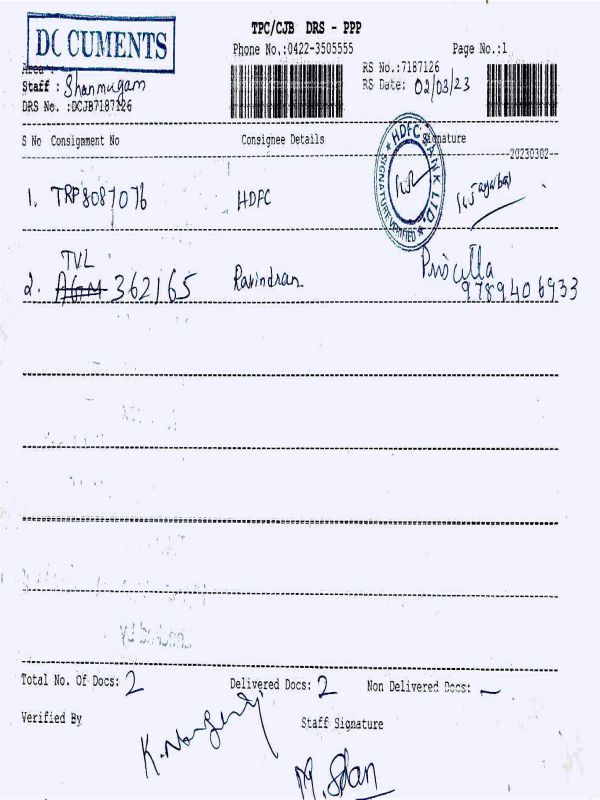 TPC/CJB DRS - PPP
DOCUMENTS
Phone No.:0422-3505555
Page No.:1
Area :
RS No.:7187126
Staff : Shanmugam
RS Date: 02/03/23
DRS No. :DCJB7187126
S No Consignment No Consignee Details Signature
20230302
HDFC BANK LTD.
SIGNATURE VERIFIED
1. TRP8087076 HDFC
TVL
2. AGM 362165 Ravindran Priscilla
9789406933
Total No. Of Docs: 2 Delivered Docs: 2 Non Delivered Docs: –
Verified By
Staff Signature
M. Shan